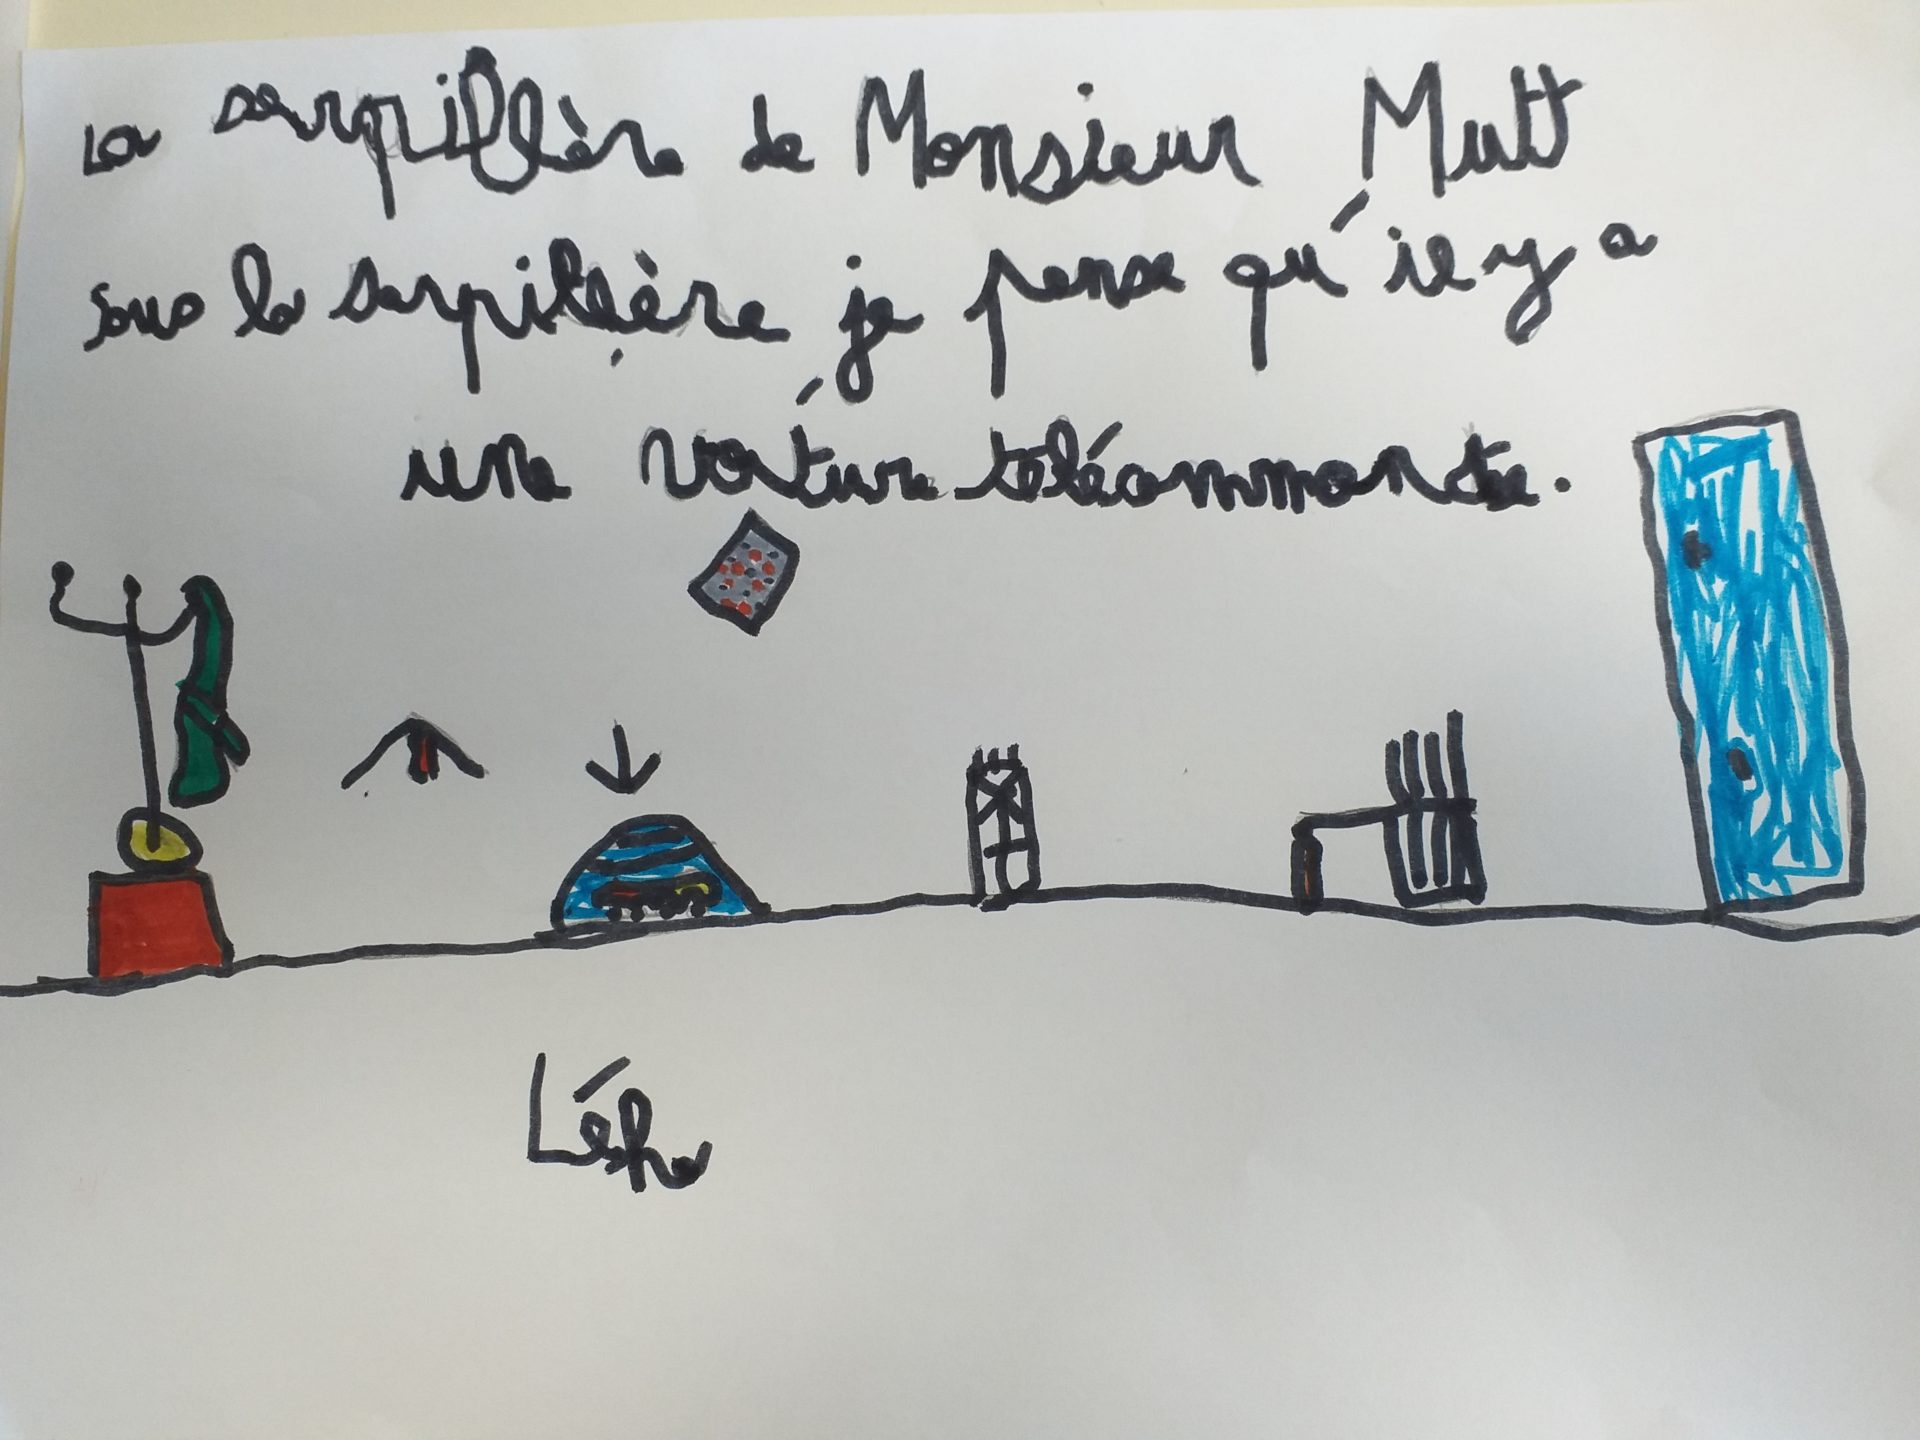 La serpillère de Monsieur Mutt
Sous la serpillère je pense qu'il y a
une voiture télécommande.
Lésha